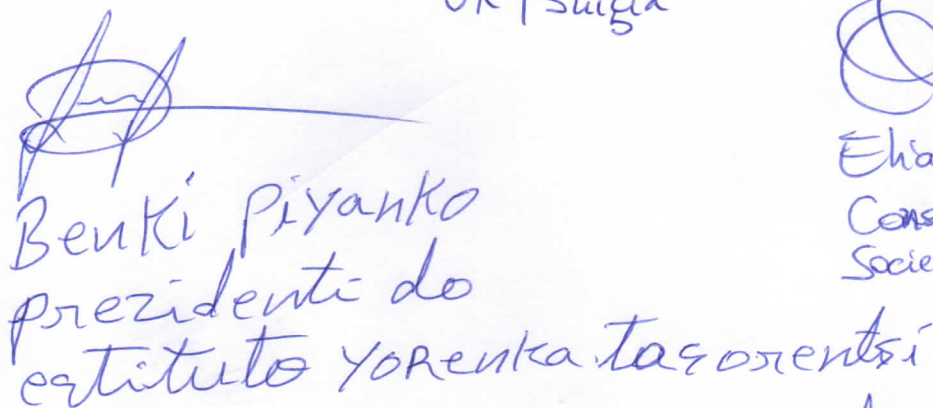 UK / Suiça
Benki Piyanko
prezidenti do
estituto YORenka tasorentsi
Elia
Cons
Socie